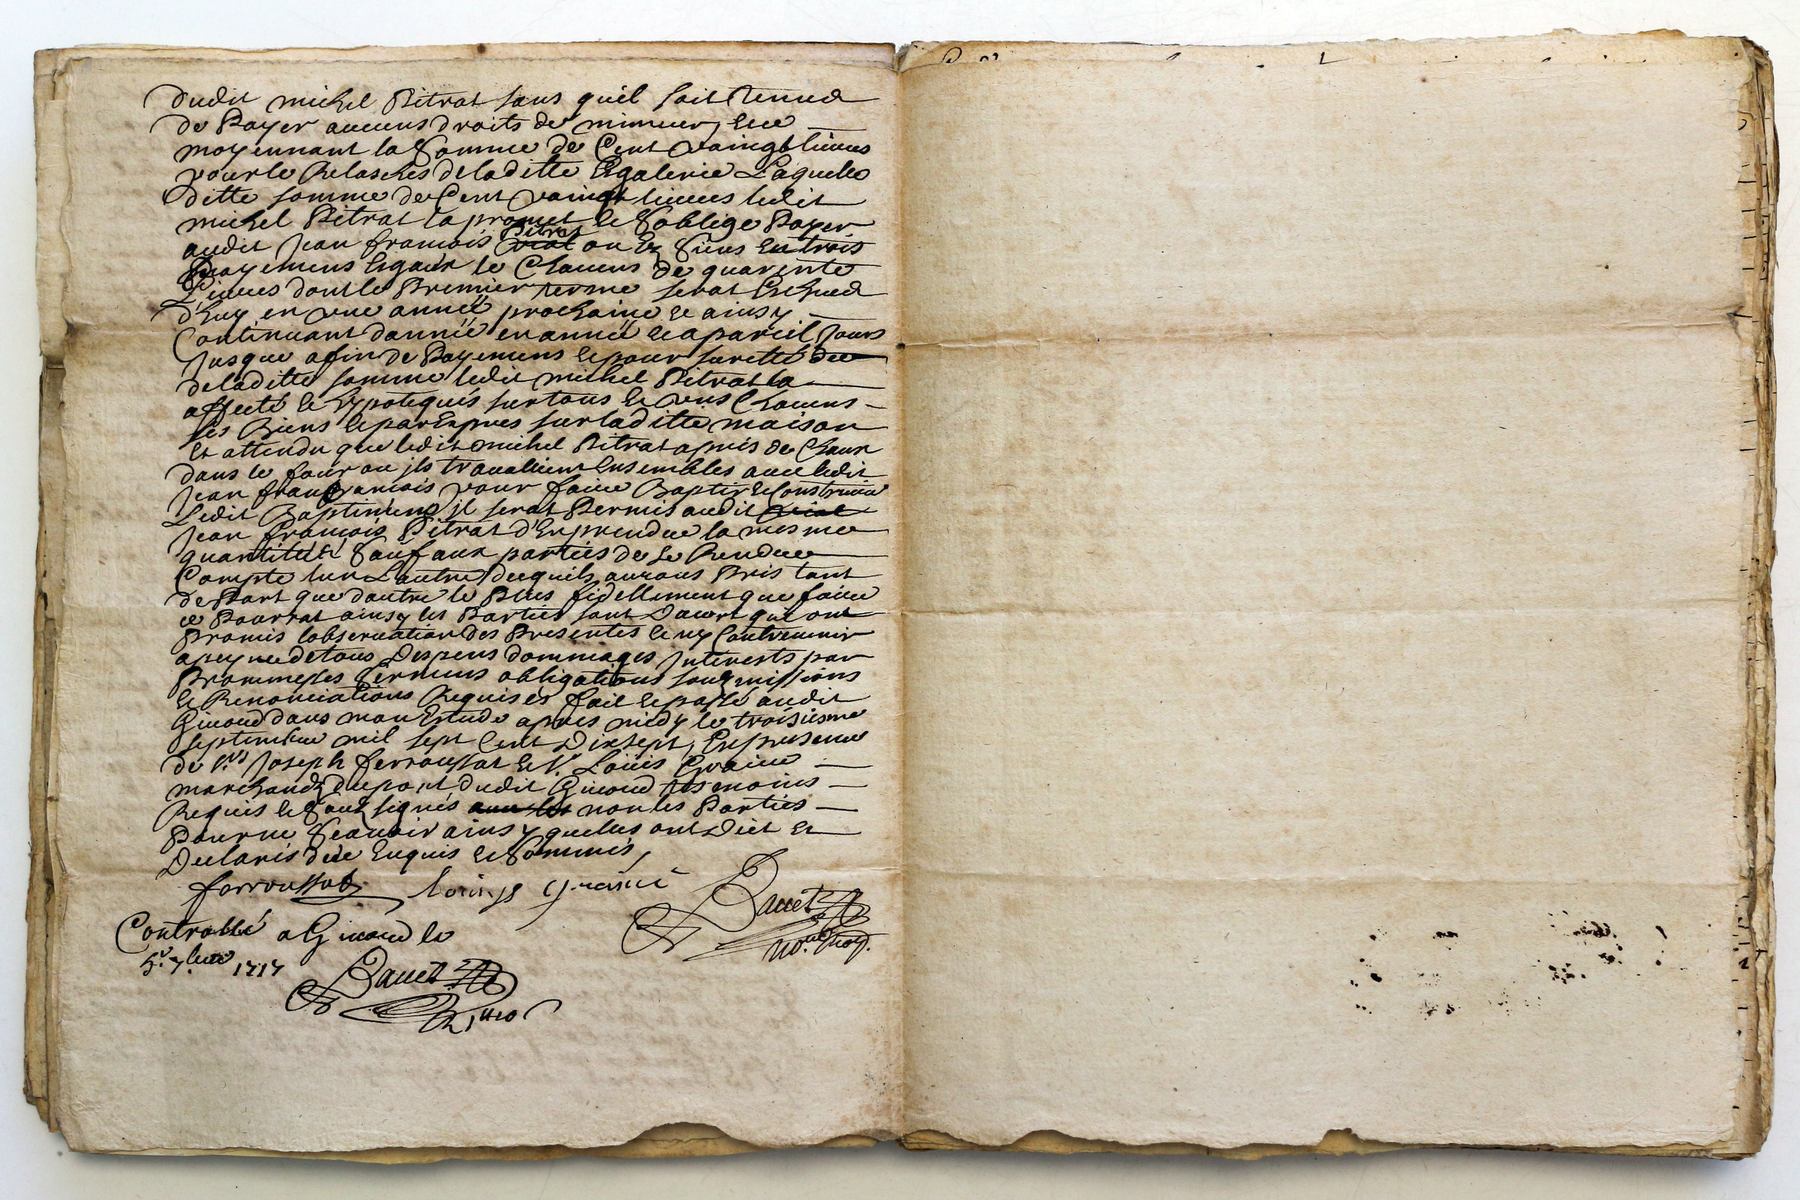 dudit michel Pitrat sans quil soit tenud
de Payer aucuns droits de
moyennant la somme de Cent vaingt livres
pour le Relasches de laditte Egalerie Laquelle
ditte somme de Cent vaingt livres ledit
michel Pitrat la promet et soblige Payer
audit Jean francois Pitrat ou Es siens En trois
Payemens Egaux le Chacuns de quarente
Livres dont le Premier terme serat Escheud
d'huy en une année prochaine et ainsy
Continuant dannée en année et a pareil Jours
Jusque a fin de Payemens et pour sureté
de laditte somme ledit michel Pitrat la
affecté et Ypotequés sur tous et uns Chacuns
ses Biens et par Expres sur laditte maison
Et attendu que ledit michel Pitrat a pris de Chaux
dans le four ou ils travalient Ensembles avec ledit
Jean francois pour faire Baptir et Construire
Ledit Baptimens il serat Permis audit
Jean francois Pitrat d'En prendre la mesme
quantitté sauf aux parties de se Rendre
Compte lun Lautre de quils aurons Pris tant
de Part que dautre le Plus fidellement que faire
ce Pourrat ainsy les Parties sont Dacort qui ont
Promis lobservation des Presentes et ny Contrevenir
a peyne de tous Despens dommages Interests par
Prommesses sermens obligations soubmissions
et Renonciations Requises fait et passé audit
Givord dans mon Estude apres midy le troisiesme
septembre mil sept Cent Dixsept, En presence
de Srs Joseph ferroussat et Sr Louis Graine
marchands du port dudit Givord tesmoins
Requis et soubsignés non les Parties
Pour ne scavoir ainsy quelles ont Diet et
Declarés de Enquis et sommés,
ferroussat louys graine
Controllé a Givord le
5e 7bre 1717